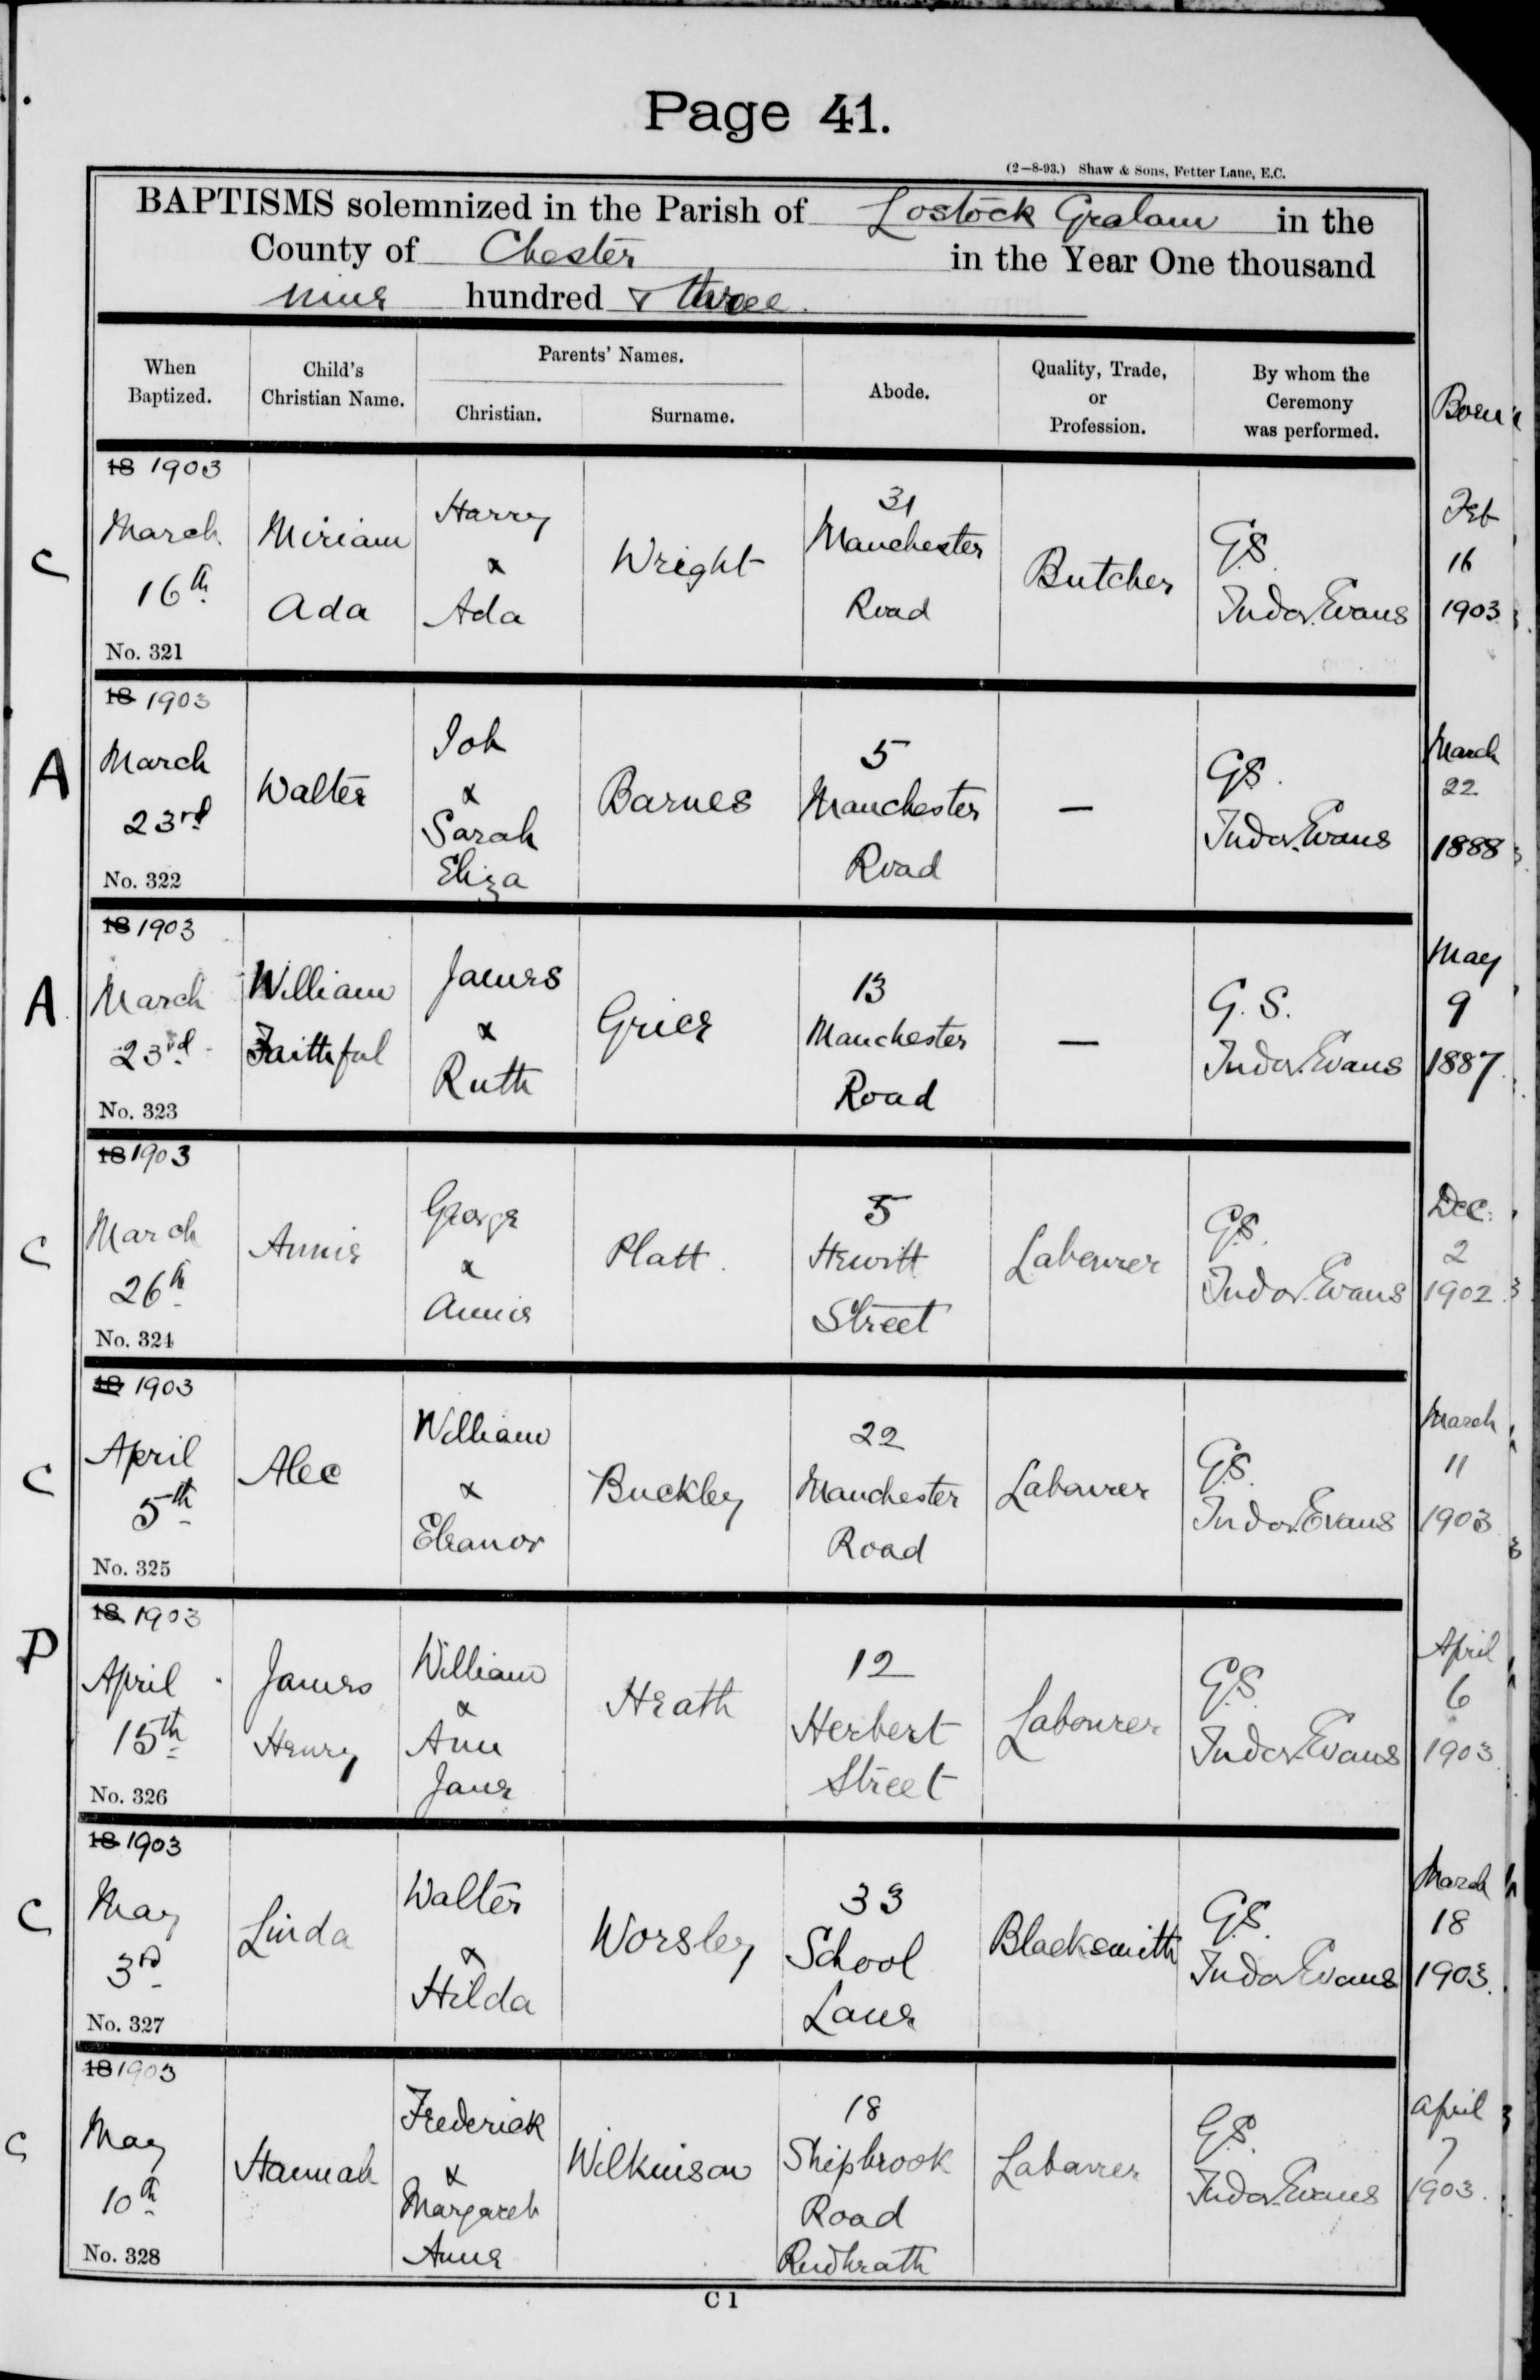 Page 41.
(2-8-93.) Shaw & Sons, Fetter Lane, E.C.
BAPTISMS solemnized in the Parish of Lostock Gralam in the
County of Chester in the Year One thousand
nine hundred & three.
When Baptized.
Child's Christian Name.
Parents' Names.
Christian.
Surname.
Abode.
Quality, Trade, or Profession.
By whom the Ceremony was performed.
Born
C
18 1903
March
16th
No. 321
Miriam
Ada
Harry
&
Ada
Wright
31
Manchester
Road
Butcher
G.S.
Tudor Evans
Feb
16
1903
A
18 1903
March
23rd
No. 322
Walter
Job
&
Sarah
Eliza
Barnes
5
Manchester
Road
—
G.S.
Tudor Evans
March
22
1888
A
18 1903
March
23rd
No. 323
William
Faithful
James
&
Ruth
Grice
13
Manchester
Road
—
G. S.
Tudor Evans
May
9
1887
C
18 1903
March
26th
No. 324
Annie
George
&
Annie
Platt.
5
Hewitt
Street
Labourer
G.S.
Tudor Evans
Dec.
2
1902
C
18 1903
April
5th
No. 325
Alec
William
&
Eleanor
Buckley
22
Manchester
Road
Labourer
G.S.
Tudor Evans
March
11
1903
P
18 1903
April
15th
No. 326
James
Henry
William
&
Ann
Jane
Heath
12
Herbert
Street
Labourer
G.S.
Tudor Evans
April
6
1903
C
18 1903
May
3rd
No. 327
Linda
Walter
&
Hilda
Worsley
33
School
Lane
Blacksmith
G.S.
Tudor Evans
March
18
1903.
C
18 1903
May
10th
No. 328
Hannah
Frederick
&
Margaret
Anne
Wilkinson
18
Shipbrook
Road
Rudheath
Labourer
G.S.
Tudor Evans
April
7
1903.
C 1